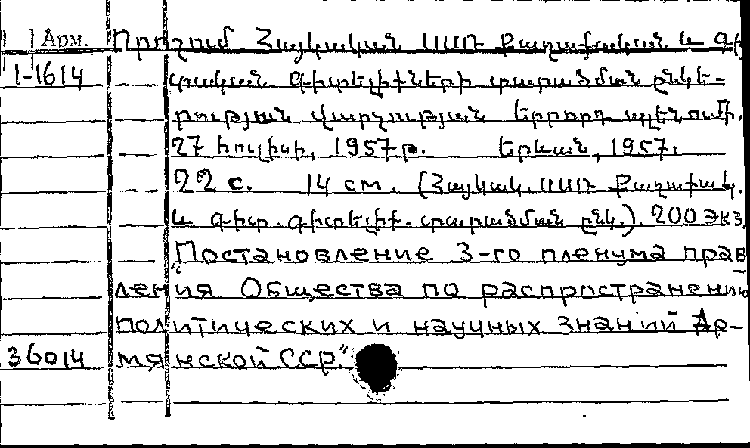 Арм. Որոշում Հայկական ՍՍՌ Քաղաքական և Գի
1-1614 տական Գիտելիքների տարածման ընկե-
րության վարչության Երրորդ պլենումի.
27 հուլիսի, 1957թ. Երևան, 1957.
22 с. 14 см. (Հայկակ. ՍՍՌ Քաղաքակ.
և գիտ. գիտելիք. տարածման ընկ.). 200 экз.
"Постановление 3-го пленума прав
ления Общества по распространению
политических и научных знаний Ар-
36014 мянской ССР."